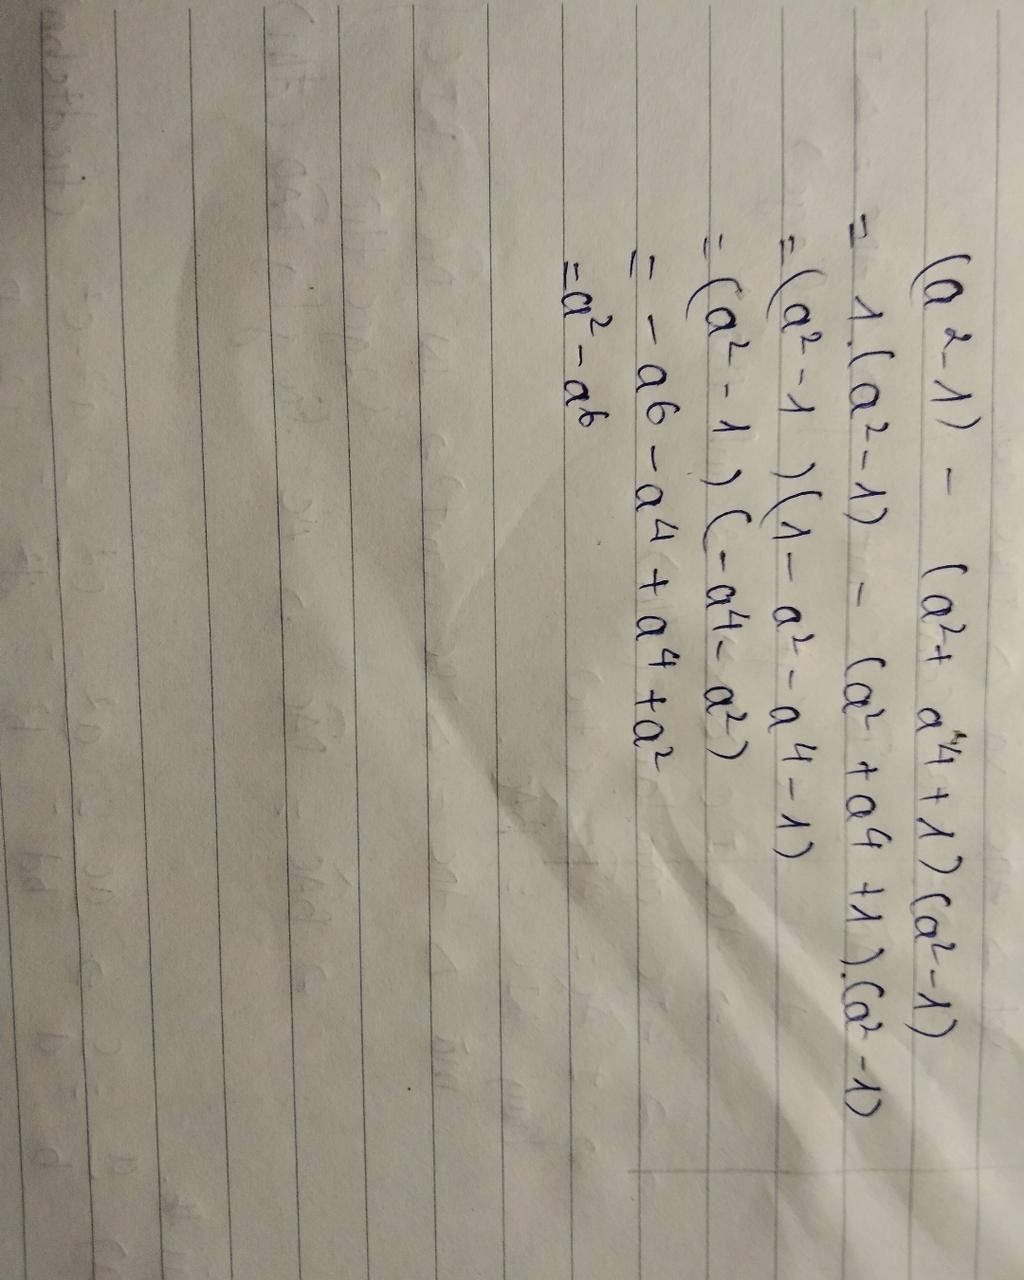 (a²-1) - (a²+ a⁴+1) (a²-1)
= 1.(a²-1) - (a²+a⁴+1).(a²-1)
= (a²-1)(1-a²-a⁴-1)
= (a²-1)(-a⁴-a²)
= -a⁶-a⁴+a⁴+a²
= a²-a⁶